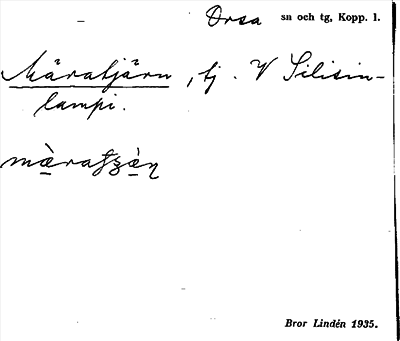 Orsa sn och tg, Kopp. l.
Märatjärn, tj. V Silisin-
lampi.
Bror Lindén 1935.